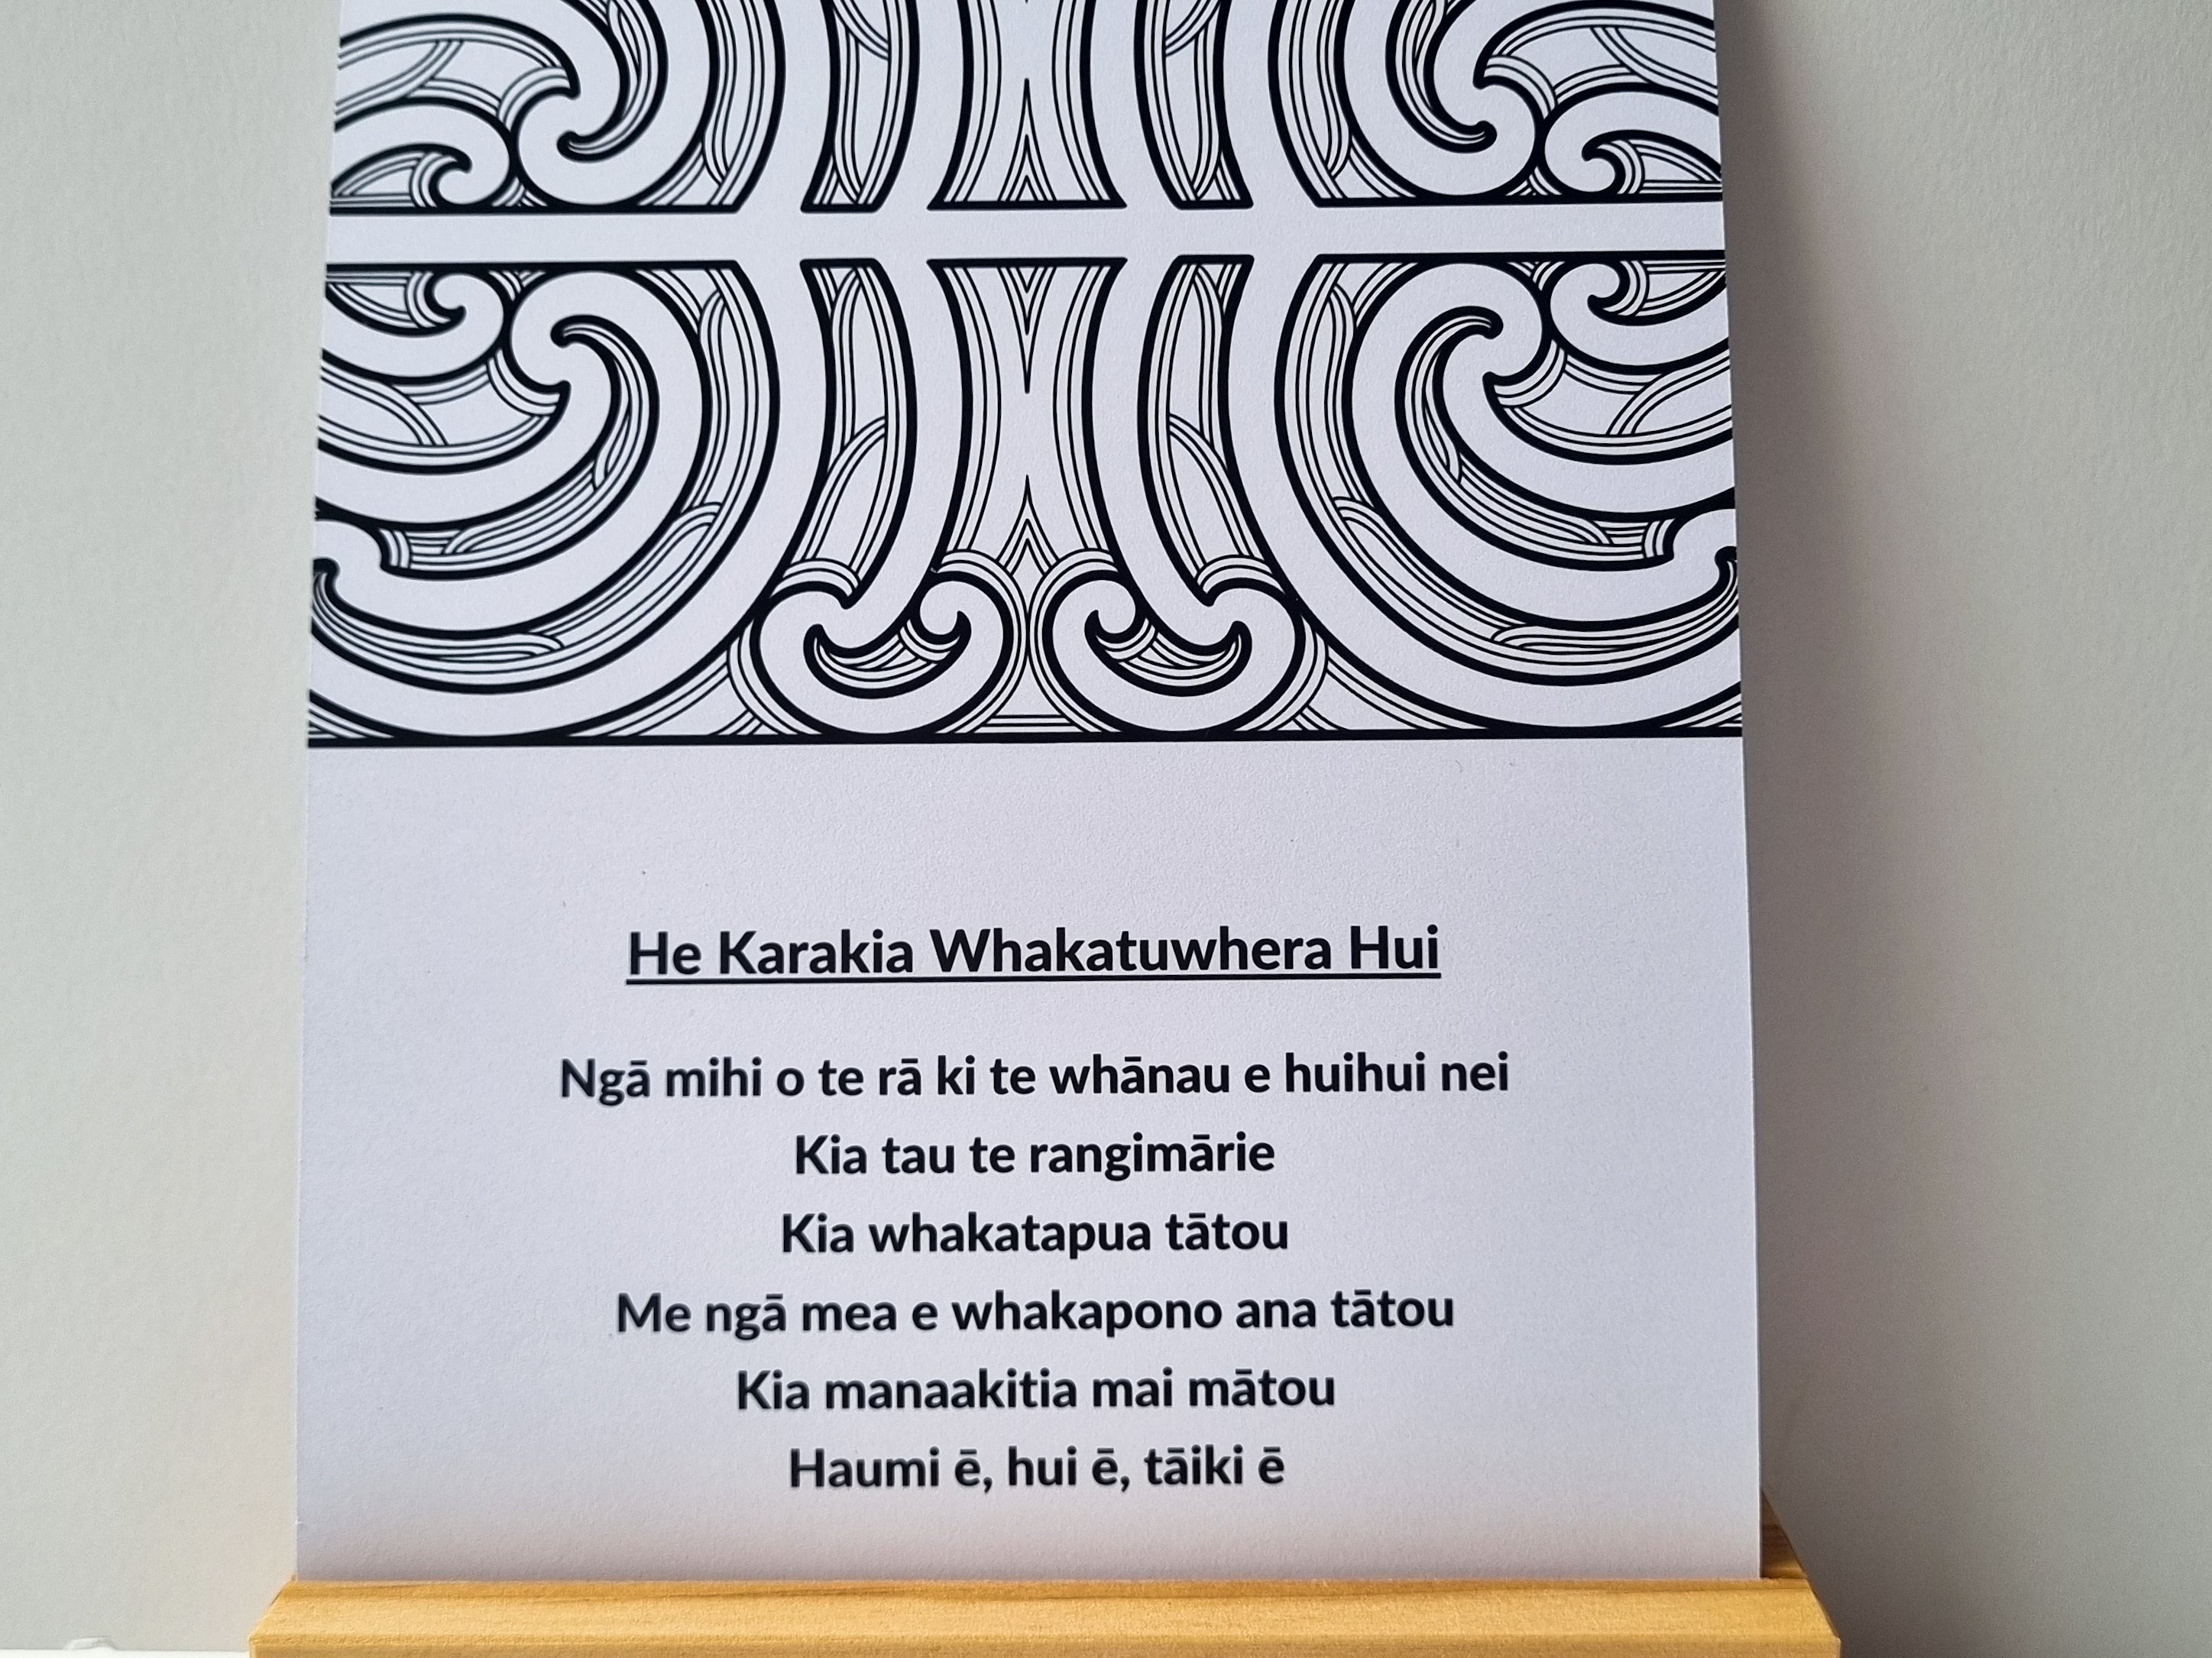 He Karakia Whakatuwhera Hui
Ngā mihi o te rā ki te whānau e huihui nei
Kia tau te rangimārie
Kia whakatapua tātou
Me ngā mea e whakapono ana tātou
Kia manaakitia mai mātou
Haumi ē, hui ē, tāiki ē